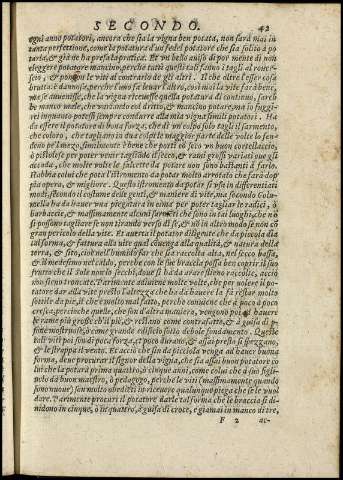 SECONDO. 42
ogni anno potatori, ancora che sia la vigna ben potata, non sarà mai in
tanta perfettione, come la potatura d'un fedel potatore che sia solito a po
tarla, & già ne ha presa la pratica. Et v'è bello auiso di por mente di non
eleggere potatore mancino, perche tutti questi tali fanno i tagli al roue-
scio, & pongono le viti al contrario de gli altri. Il che oltre l'esser cosa
brutta è dannosa, perche l'uno fa leuar l'altro, così mai la vite farà bene,
ma se auuenisse, che la vigna riceuesse quella potatura di continuo, sareb
be manco male, che variando col dritto, & mancino potare, ma io suggi-
rei in quanto potessi sempre condurre alla mia vigna simili potatori. Ha
da essere il potatore di bona forza, che di un colpo solo tagli il sarmento,
che coloro, che tagliano in due colpi le maggior parte delle volte lo fen-
deno pe'l mezo, similmente è bene che porti cō seco vn buon cortellaccio,
ò pistolese per poter venar tagliado il secco, & rami grossi variati oue gli
accada, che molte volte le falcette da potare non sono bastanti à farlo.
Habbia colui che pota l'istromento da potar molto arrotato che farà dop
pia opera, & migliore. Questo istromento da potar si vsa in differentiati
modi, secondo il costume delle genti, & maniere di vite, ma secondo Colu-
mella ha da hauer vna piegatura in cima per poter tagliar le radici, ò
barbaccie, & massimamente alcuni sarmēti che sono in tai luoghi, che nō
si possono tagliare se non tirando verso di se, & nō in altro modo se non cō
gran pericolo della vite. Et auerta il potatore diligente che da picciola dia
tal forma, & fattura alla vite qual conuenga alla qualità, & natura della
terra, & sito, cioè nell'humido far che sia raccolta alta, nel secco bassa,
& il medesimo nel caldo, perche con le sue braccia possa ben coprir il suo
frutto che il Sole non lo secchi, doue si ha da arare siieno raccolte, acciò
non sieno troncate. Parimente aduiene molte volte, che per volere il po-
tatore dar alla vite presto l'altezza che ha da hauere la fà restar molto
sottile da pie, il che è molto mal fatto, perche conuiene che à poco à poco
cresca, percioche quelle, che son d'altra maniera, vengono poi ad hauere
le rame più grosse ch'il piè, & restano come contrafatte, & à guisa di pi
sione mostruose, ò come grande edificio fatto debole fondamento. Queste
tali viti poi son di poca forza, et poco durano, & assai presto si spezzano,
& le strappa il vento. Et acciò che sin da picciola venga ad hauer buona
forma, deue procurar il signor della vigna, che sia assai buon potatore co
lui che la potarà prima quattro, ò cinque anni, come colui che à suo figli-
uolo dà buon maestro, ò pedagogo, perche le viti (massimamente quando
sono nuoue) son molto obedienti in riceuere qualunque piega che se le vuol
dare. Parimente procuri il potatore darle tal forma che le braccia si di-
uidono in cinque, ò in quattro, à guisa di croce, e giamai in manco di tre,
F 2 ac-